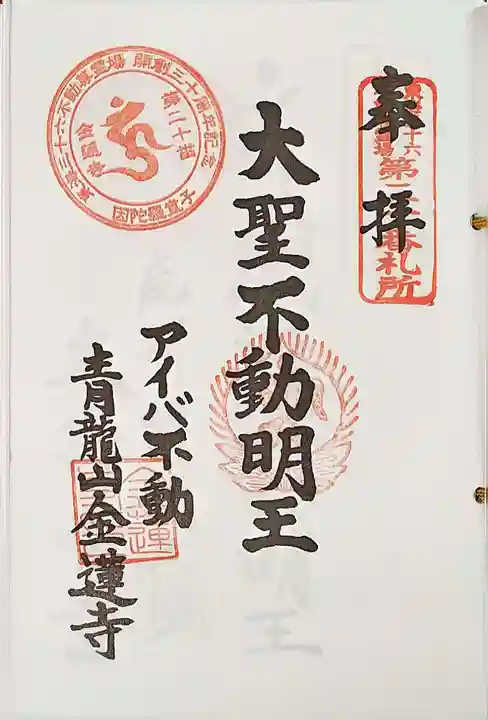 奉拝
第二十番札所
大聖不動明王
アイバ不動
青龍山金蓮寺
東海三十六不動尊霊場 開創三十周年記念
第二十招
金蓮寺
因陀羅童子